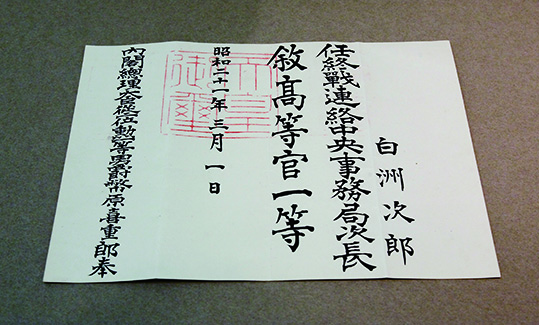 白洲次郎
任終戰連絡中央事務局次長
敘高等官一等
天皇御璽
昭和二十一年三月一日
內閣總理大臣位勲一等男爵幣原喜重郎奉